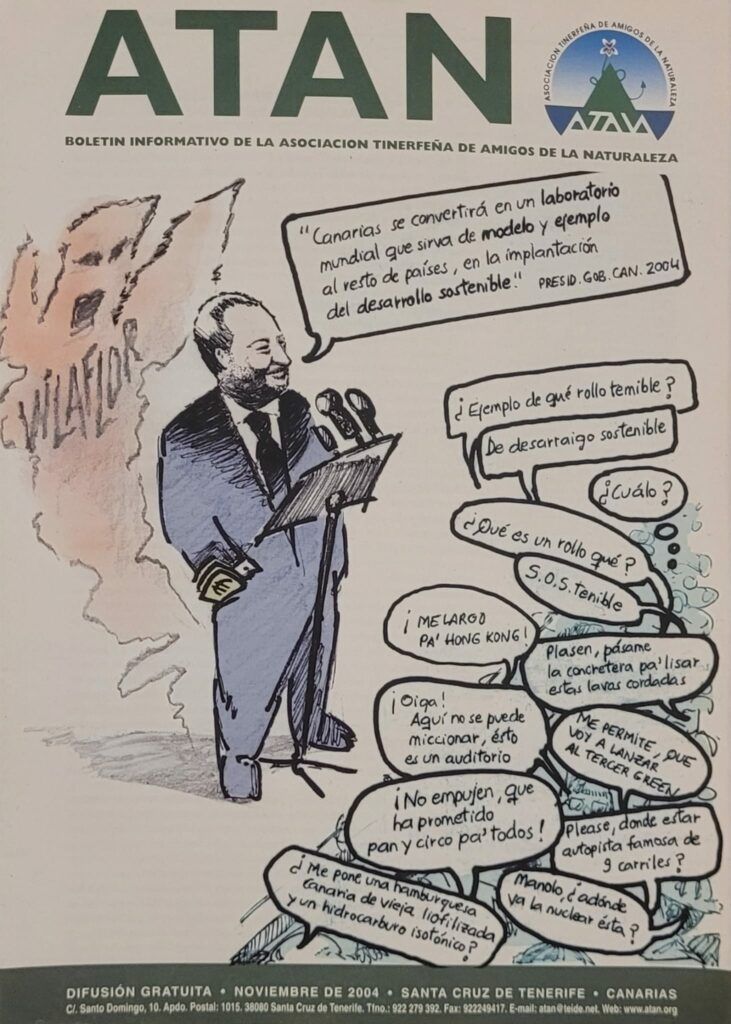 ATAN
ASOCIACION TINERFEÑA DE AMIGOS DE LA NATURALEZA
ATAN
BOLETIN INFORMATIVO DE LA ASOCIACION TINERFEÑA DE AMIGOS DE LA NATURALEZA
"Canarias se convertirá en un laboratorio
mundial que sirva de modelo y ejemplo
al resto de países, en la implantación
del desarrollo sostenible."
PRESID. GOB. CAN. 2004
VILAFLOR
¿Ejemplo de qué rollo temible?
De desarraigo sostenible
¿Cuálo?
¿Qué es un rollo qué?
S.O.S.tenible
¡ME LARGO
PA' HONG KONG!
Plasen, pásame
la concretera pa'lisar
estas lavas cordadas
¡Oiga!
Aquí no se puede
miccionar, ésto
es un auditorio
ME PERMITE, QUE
VOY A LANZAR
AL TERCER GREEN
¡No empujen, que
ha prometido
pan y circo pa' todos!
Please, donde estar
autopista famosa de
9 carriles?
¿Me pone una hamburguesa
canaria de vieja liofilizada
y un hidrocarburo isotónico?
Manolo, ¿adónde
va la nuclear ésta?
DIFUSIÓN GRATUITA • NOVIEMBRE DE 2004 • SANTA CRUZ DE TENERIFE • CANARIAS
C/. Santo Domingo, 10. Apdo. Postal: 1015. 38080 Santa Cruz de Tenerife. Tfno.: 922 279 392. Fax: 922249417. E-mail: atan@teide.net. Web: www.atan.org